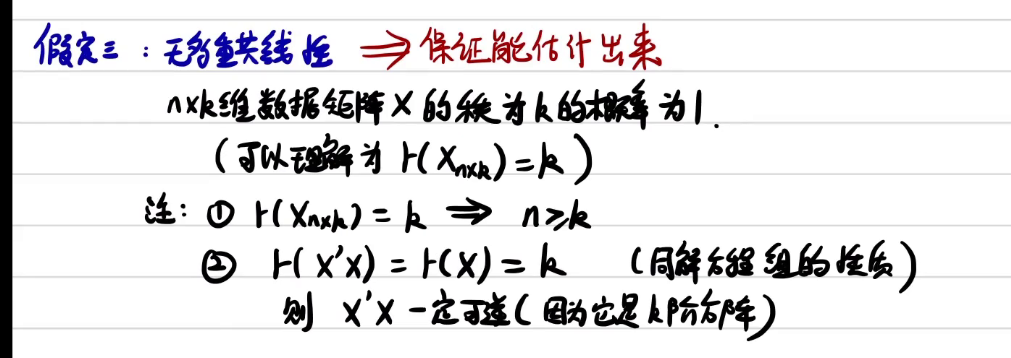 假定三：无多重共线性 ⇒ 保证能估计出来
n×k维数据矩阵 X 的秩为 k 的概率为1.
(可以理解为 r(Xₙₓₖ)=k)
注: ① r(Xₙₓₖ) = k ⇒ n≥k
② r(X'X) = r(X) = k (同解方程组的性质)
则 X'X 一定可逆(因为它是k阶方阵)